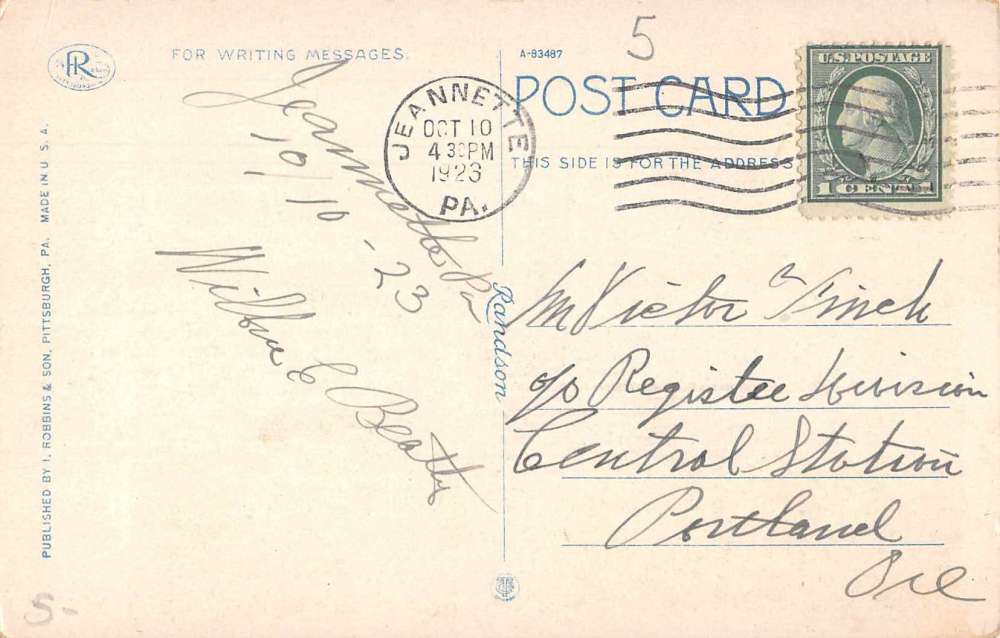 FOR WRITING MESSAGES.
A-83487
5
POST CARD
THIS SIDE IS FOR THE ADDRESS
U.S. POSTAGE
1 CENT 1
JEANNETTE
OCT 10
4 30 PM
1923
PA.
R
Jeannette Pa
10/10-23
Wilbur E Beatty
Mr Victor Finck
c/o Register Division
Central Station
Portland
Ore
Randson
PUBLISHED BY I. ROBBINS & SON, PITTSBURGH, PA. MADE IN U. S. A.
5.